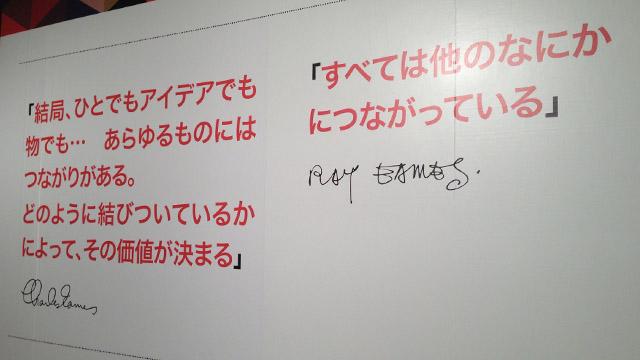 「結局、ひとでもアイデアでも
物でも… あらゆるものには
つながりがある。
どのように結びついているか
によって、その価値が決まる」
Charles Eames
「すべては他のなにか
につながっている」
RAY EAMES.